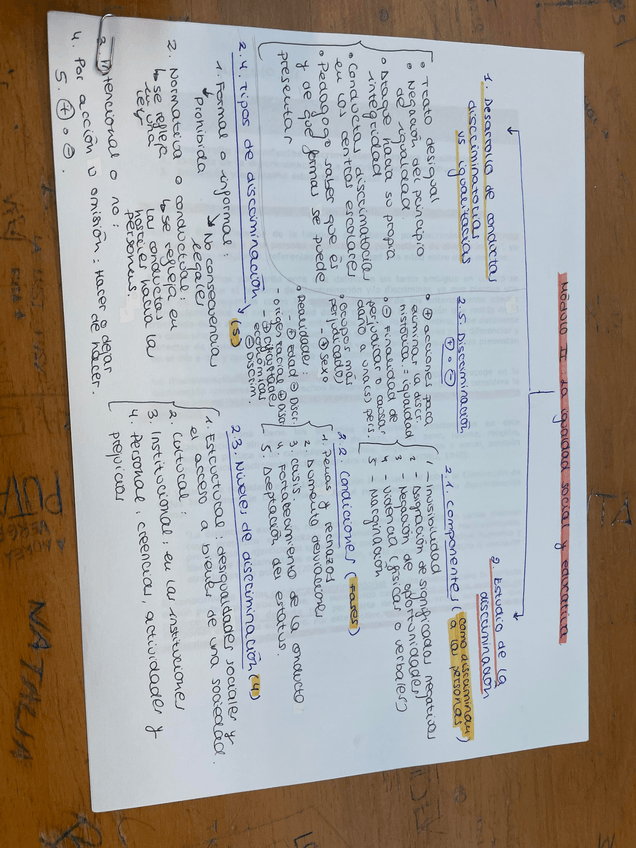 Módulo II: La igualdad social y educativa
1. Desarrollo de conductas
discriminatorias
vs igualitarias
• Trato desigual
• Negación del principio
de igualdad.
• Ataque hacia su propia
integridad
• Conductas discriminatorias
en los centros escolares
• Pedagogo saber que es
y de qué formas se puede
presentar
2. Estudio de la
discriminación
2.1. Componentes (como discriminar
a las personas)
1 - Invisibilidad
2 - Asignación de significados negativos
3 - Negación de oportunidades
4 - Violencia (físicas o verbales)
5 - Marginación
2.2. Condiciones (Fases)
1. Penas y rechazos
2. Aumento desviaciones
3. Crisis.
4. Fortalecimiento de la conducta
5. Aceptación del estatus.
2.3. Niveles de discriminación (4)
1. Estructural: desigualdades sociales y
el acceso a bienes de una sociedad.
2. Cultural:
3. Institucional: en las instituciones
4. Personal: creencias, actividades y
prejuicios
2.4. Tipos de discriminación (5)
1. Formal o informal:
Prohibida
No consecuencia
legales
2. Normativa o conductual:
se refleja
en una
ley
se refleja en
las conductas
hechles hacia la
personas.
3. Intencional o no:
4. Por acción u omisión: Hacer o dejar
de hacer.
5. + o -
2.5. Discriminación
+ o -
• + acciones para
eliminar la discr.
histórica = igualdad
• - Finalidad de
perjudicar o causar
daño a una(s) pers.
• Grupos más
perjudicados
- + sexo
• Realidad:
- + edad - Discr.
- origen racial + Discr
económicas - Discrim.
PUTA
NATALIA